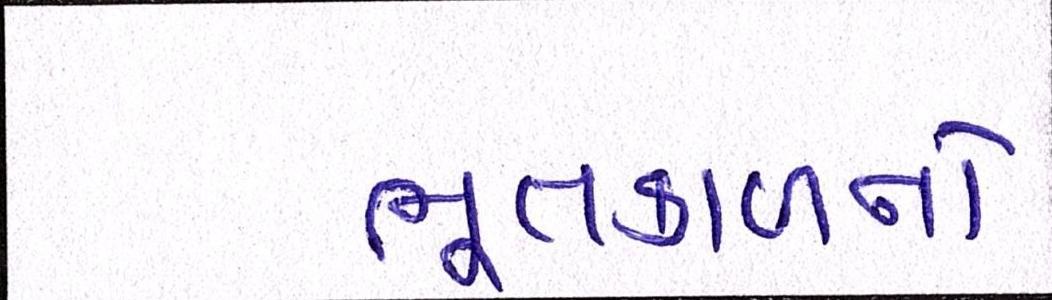 ભૂતકાળનો